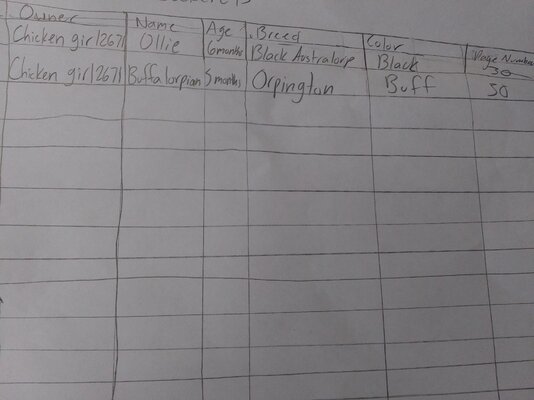 Owner Name Age Breed Color Page Number
Chicken girl2671 Ollie 6 months Black Australorp Black 30
Chicken girl2671 Buffalorpian 5 months Orpington Buff 30